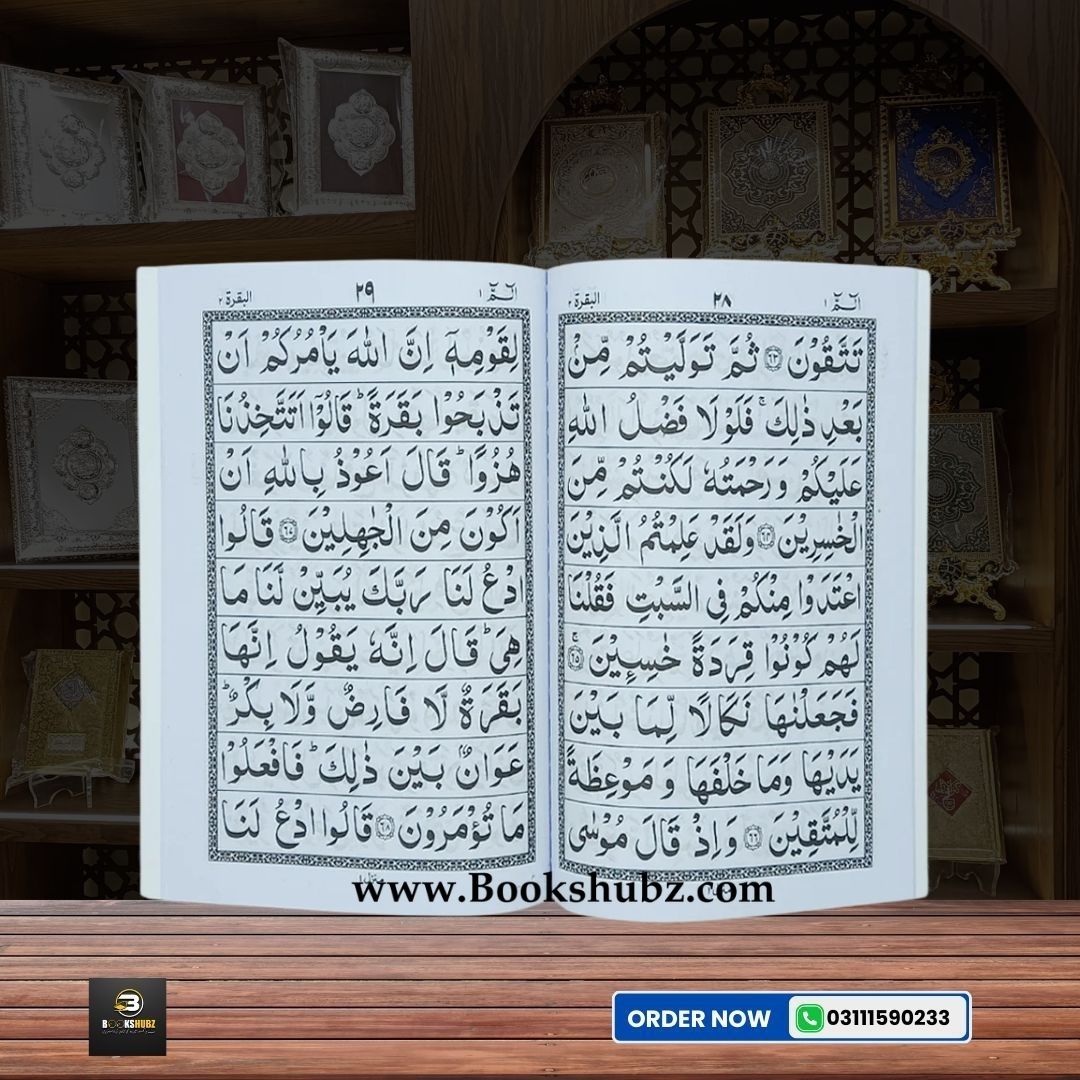 الٓمّٓ ١
٢٨
البقرة ٢
تَتَّقُوْنَ ﴿٦٣﴾ ثُمَّ تَوَلَّيْتُمْ مِّنْۢ
بَعْدِ ذٰلِكَ ۚ فَلَوْلَا فَضْلُ اللّٰهِ
عَلَيْكُمْ وَرَحْمَتُهٗ لَكُنْتُمْ مِّنَ
الْخٰسِرِيْنَ ﴿٦٤﴾ وَلَقَدْ عَلِمْتُمُ الَّذِيْنَ
اعْتَدَوْا مِنْكُمْ فِى السَّبْتِ فَقُلْنَا
لَهُمْ كُوْنُوْا قِرَدَةً خٰسِـِٕيْنَ ﴿٦٥﴾ ۚ
فَجَعَلْنٰهَا نَكَالًا لِّمَا بَيْنَ
يَدَيْهَا وَمَا خَلْفَهَا وَ مَوْعِظَةً
لِّلْمُتَّقِيْنَ ﴿٦٦﴾ وَاِذْ قَالَ مُوْسٰى
الٓمّٓ ١
٢٩
البقرة ٢
لِقَوْمِهٖٓ اِنَّ اللّٰهَ يَاْمُرُكُمْ اَنْ
تَذْبَحُوْا بَقَرَةً ؕ قَالُوْٓا اَتَتَّخِذُنَا
هُزُوًا ؕ قَالَ اَعُوْذُ بِاللّٰهِ اَنْ
اَكُوْنَ مِنَ الْجٰهِلِيْنَ ﴿٦٧﴾ قَالُوا
ادْعُ لَنَا رَبَّكَ يُبَيِّنْ لَّنَا مَا
هِىَ ؕ قَالَ اِنَّهٗ يَقُوْلُ اِنَّهَا
بَقَرَةٌ لَّا فَارِضٌ وَّلَا بِكْرٌ ؕ
عَوَانٌۢ بَيْنَ ذٰلِكَ ؕ فَافْعَلُوْا
مَا تُؤْمَرُوْنَ ﴿٦٨﴾ قَالُوا ادْعُ لَنَا
www.Bookshubz.com
BOOKSHUBZ
ORDER NOW 03111590233